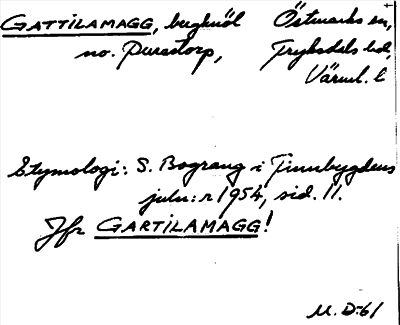 GATTILAMAGG, bergknöl Östmarks sn,
no. Purastorp, Fryksdals hd,
Värml. l
Etymologi: S. Bograng i Finnbygdens
julnr 1954, sid. 11.
Jfr GARTILAMAGG!
M. D-61